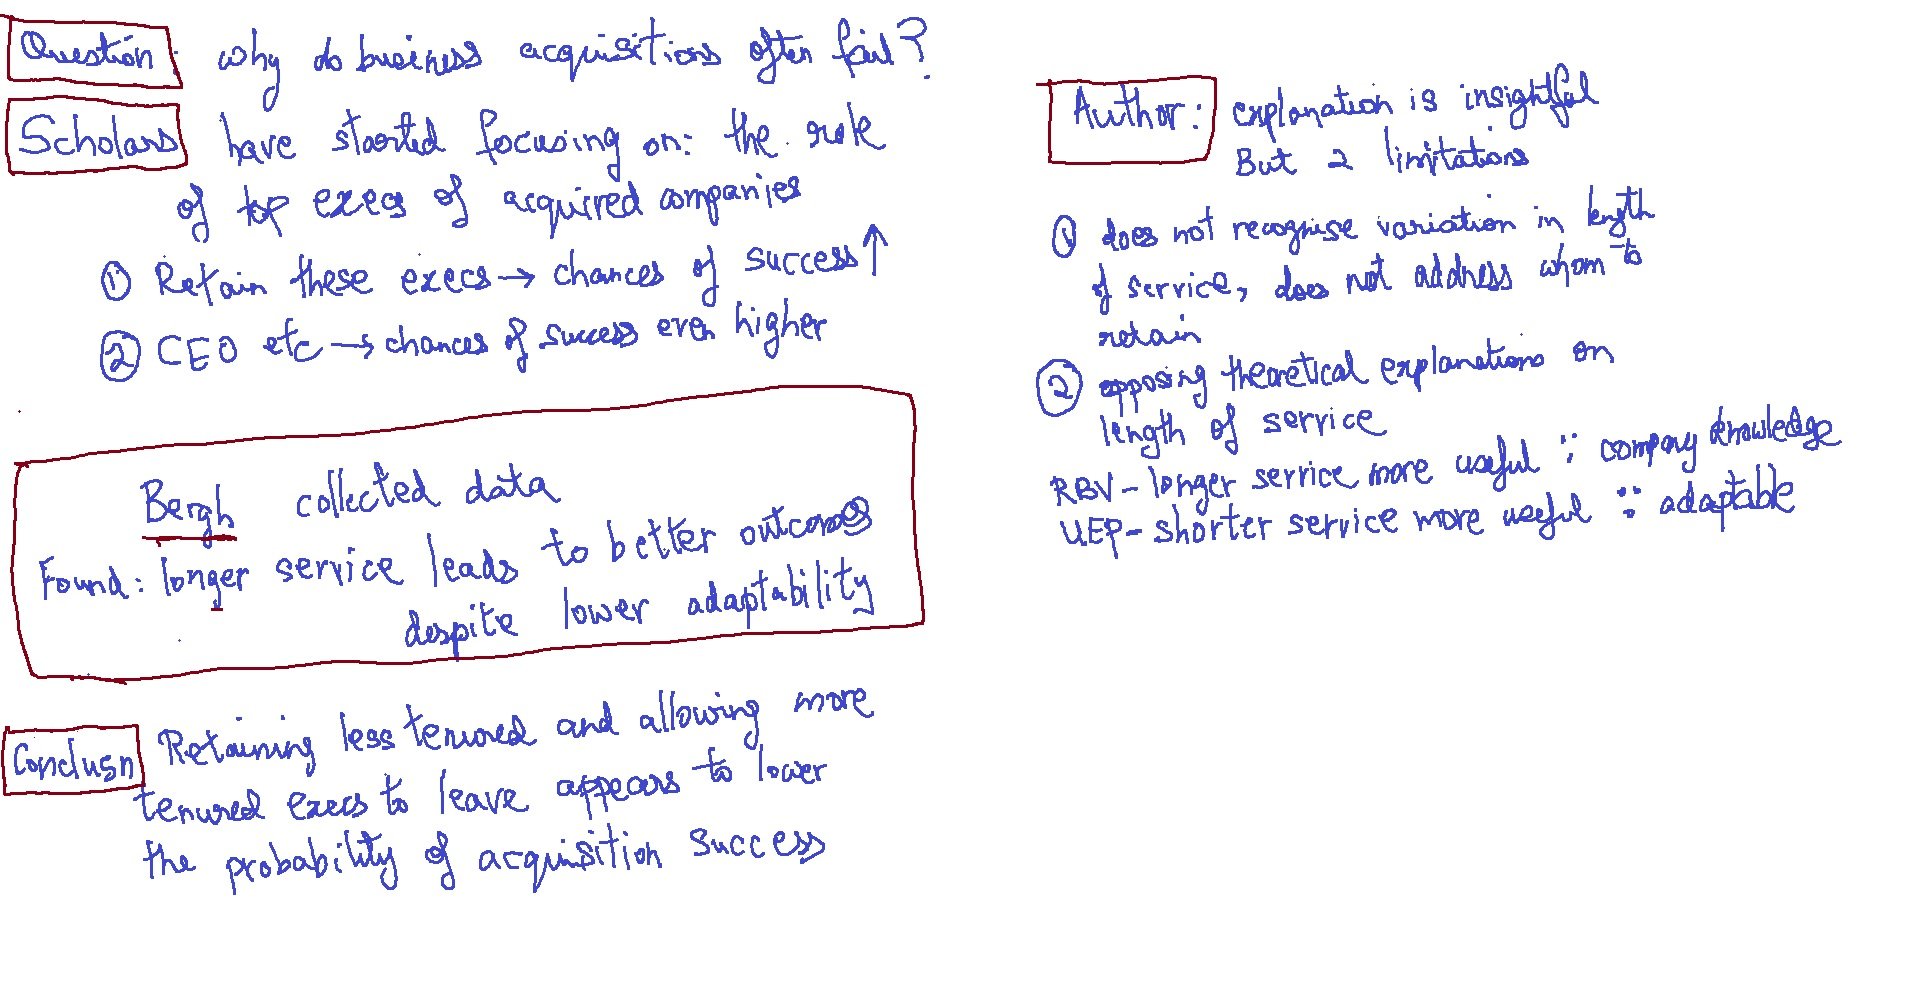 Question: why do business acquisitions often fail?
Scholars have started focusing on: the role
of top execs of acquired companies
① Retain these execs → chances of success ↑
② CEO etc → chances of success even higher
Bergh collected data
Found: longer service leads to better outcomes
despite lower adaptability
Conclusn Retaining less tenured and allowing more
tenured execs to leave appears to lower
the probability of acquisition success
Author: explanation is insightful
But 2 limitations
① does not recognise variation in length
of service, does not address whom to
retain
② opposing theoretical explanations on
length of service
RBV - longer service more useful ∵ company knowledge
UEP - shorter service more useful ∵ adaptable